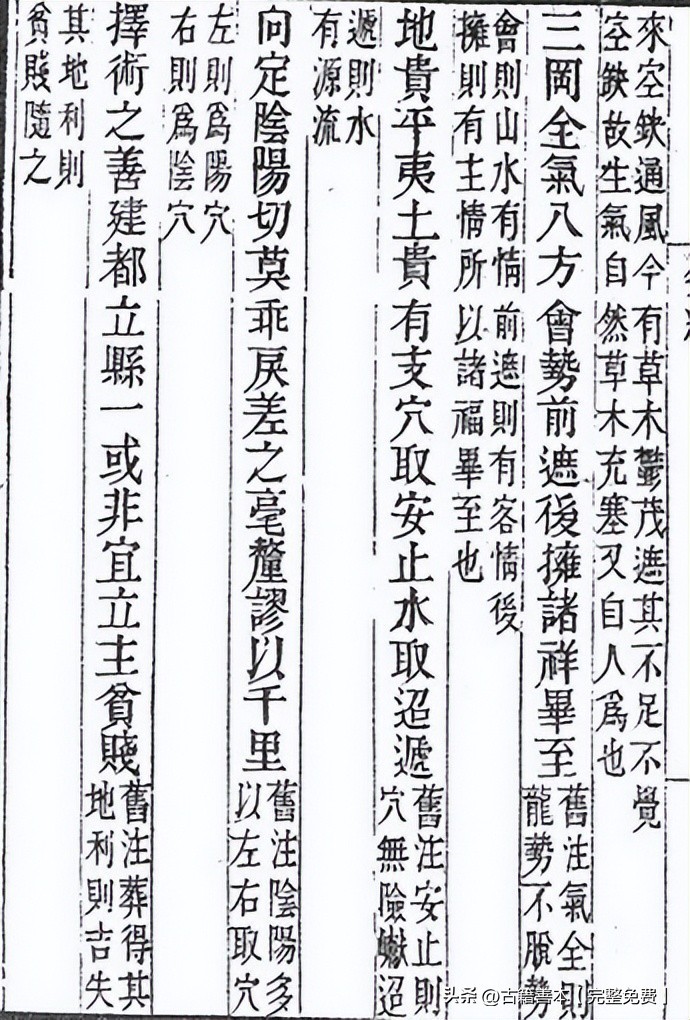 來空缺通風今有草木鬱茂遮其不足不覺
空缺故生氣自然草木充塞又自人爲也
三岡全氣八方會勢前遮後擁諸祥畢至
舊注氣全則
龍勢不脫勢
會則山水有情前遮則有客情後
擁則有主情所以諸福畢至也
地貴平夷土貴有支穴取安止水取迢遞
舊注安止則
穴無險巇迢
遞則水
有源流
向定陰陽切莫乖戾差之毫釐謬以千里
舊注陰陽多
以左右取穴
左則爲陽穴
右則爲陰穴
擇術之善建都立縣一或非宜立主貧賤
舊注葬得其
地利則吉失
其地利則
貧賤隨之
头条 @古籍善本【完整免费】